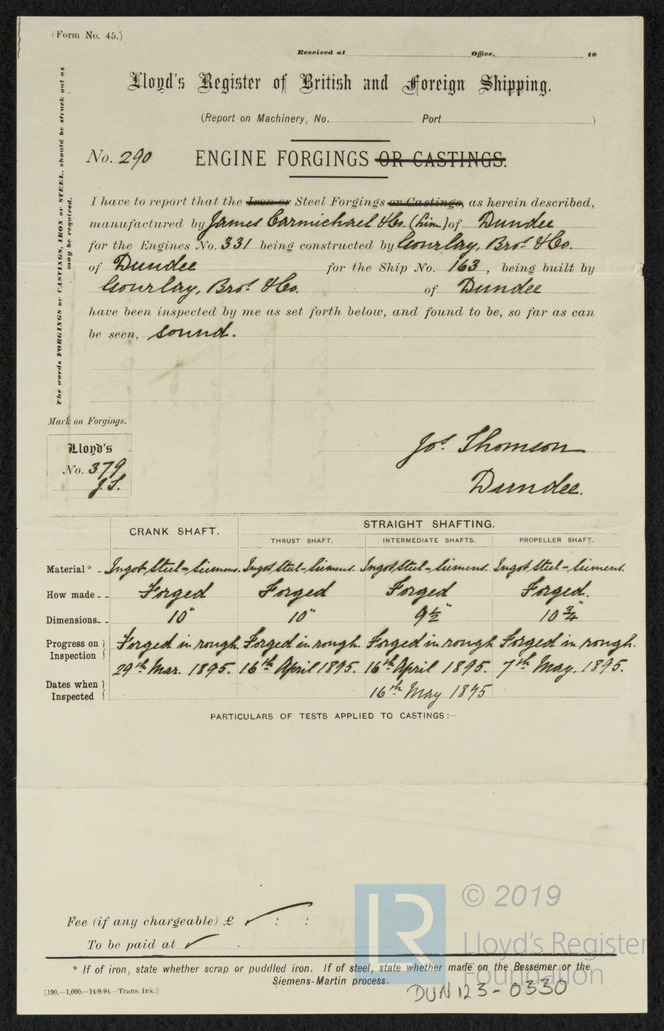 (Form No. 45.)
Received at Office, 18
Lloyd's Register of British and Foreign Shipping.
(Report on Machinery, No. Port )
No. 290 ENGINE FORGINGS OR CASTINGS.
The words FORGINGS or CASTINGS, IRON or STEEL, should be struck out as
may be required.
I have to report that the Iron or Steel Forgings or Castings, as herein described,
manufactured by James Carmichael & Co. (Lim.) of Dundee
for the Engines No. 331 being constructed by Gourlay, Bros. & Co.
of Dundee for the Ship No. 163, being built by
Gourlay, Bros. & Co. of Dundee
have been inspected by me as set forth below, and found to be, so far as can
be seen, sound.
Mark on Forgings.
Lloyd's
No. 379
J.S.
Jos. Thomson
Dundee.
CRANK SHAFT. STRAIGHT SHAFTING.
THRUST SHAFT. INTERMEDIATE SHAFTS. PROPELLER SHAFT.
Material* Ingot Steel-Siemens. Ingot Steel-Siemens. Ingot Steel-Siemens. Ingot Steel-Siemens.
How made Forged Forged Forged Forged.
Dimensions 10" 10" 9½" 10¾"
Progress on Inspection Forged in rough. Forged in rough. Forged in rough Forged in rough.
29th Mar. 1895. 16th April 1895. 16th April 1895. 7th May. 1895.
Dates when Inspected 16th May 1895
PARTICULARS OF TESTS APPLIED TO CASTINGS:—
Fee (if any chargeable) £ ✓ : :
To be paid at ✓
© 2019
Lloyd's Register
Foundation
LR
* If of iron, state whether scrap or puddled iron. If of steel, state whether made on the Bessemer or the
Siemens-Martin process.
[190.—1,000.—14/9/94.—Trans. Ink.]
DUN123-0330